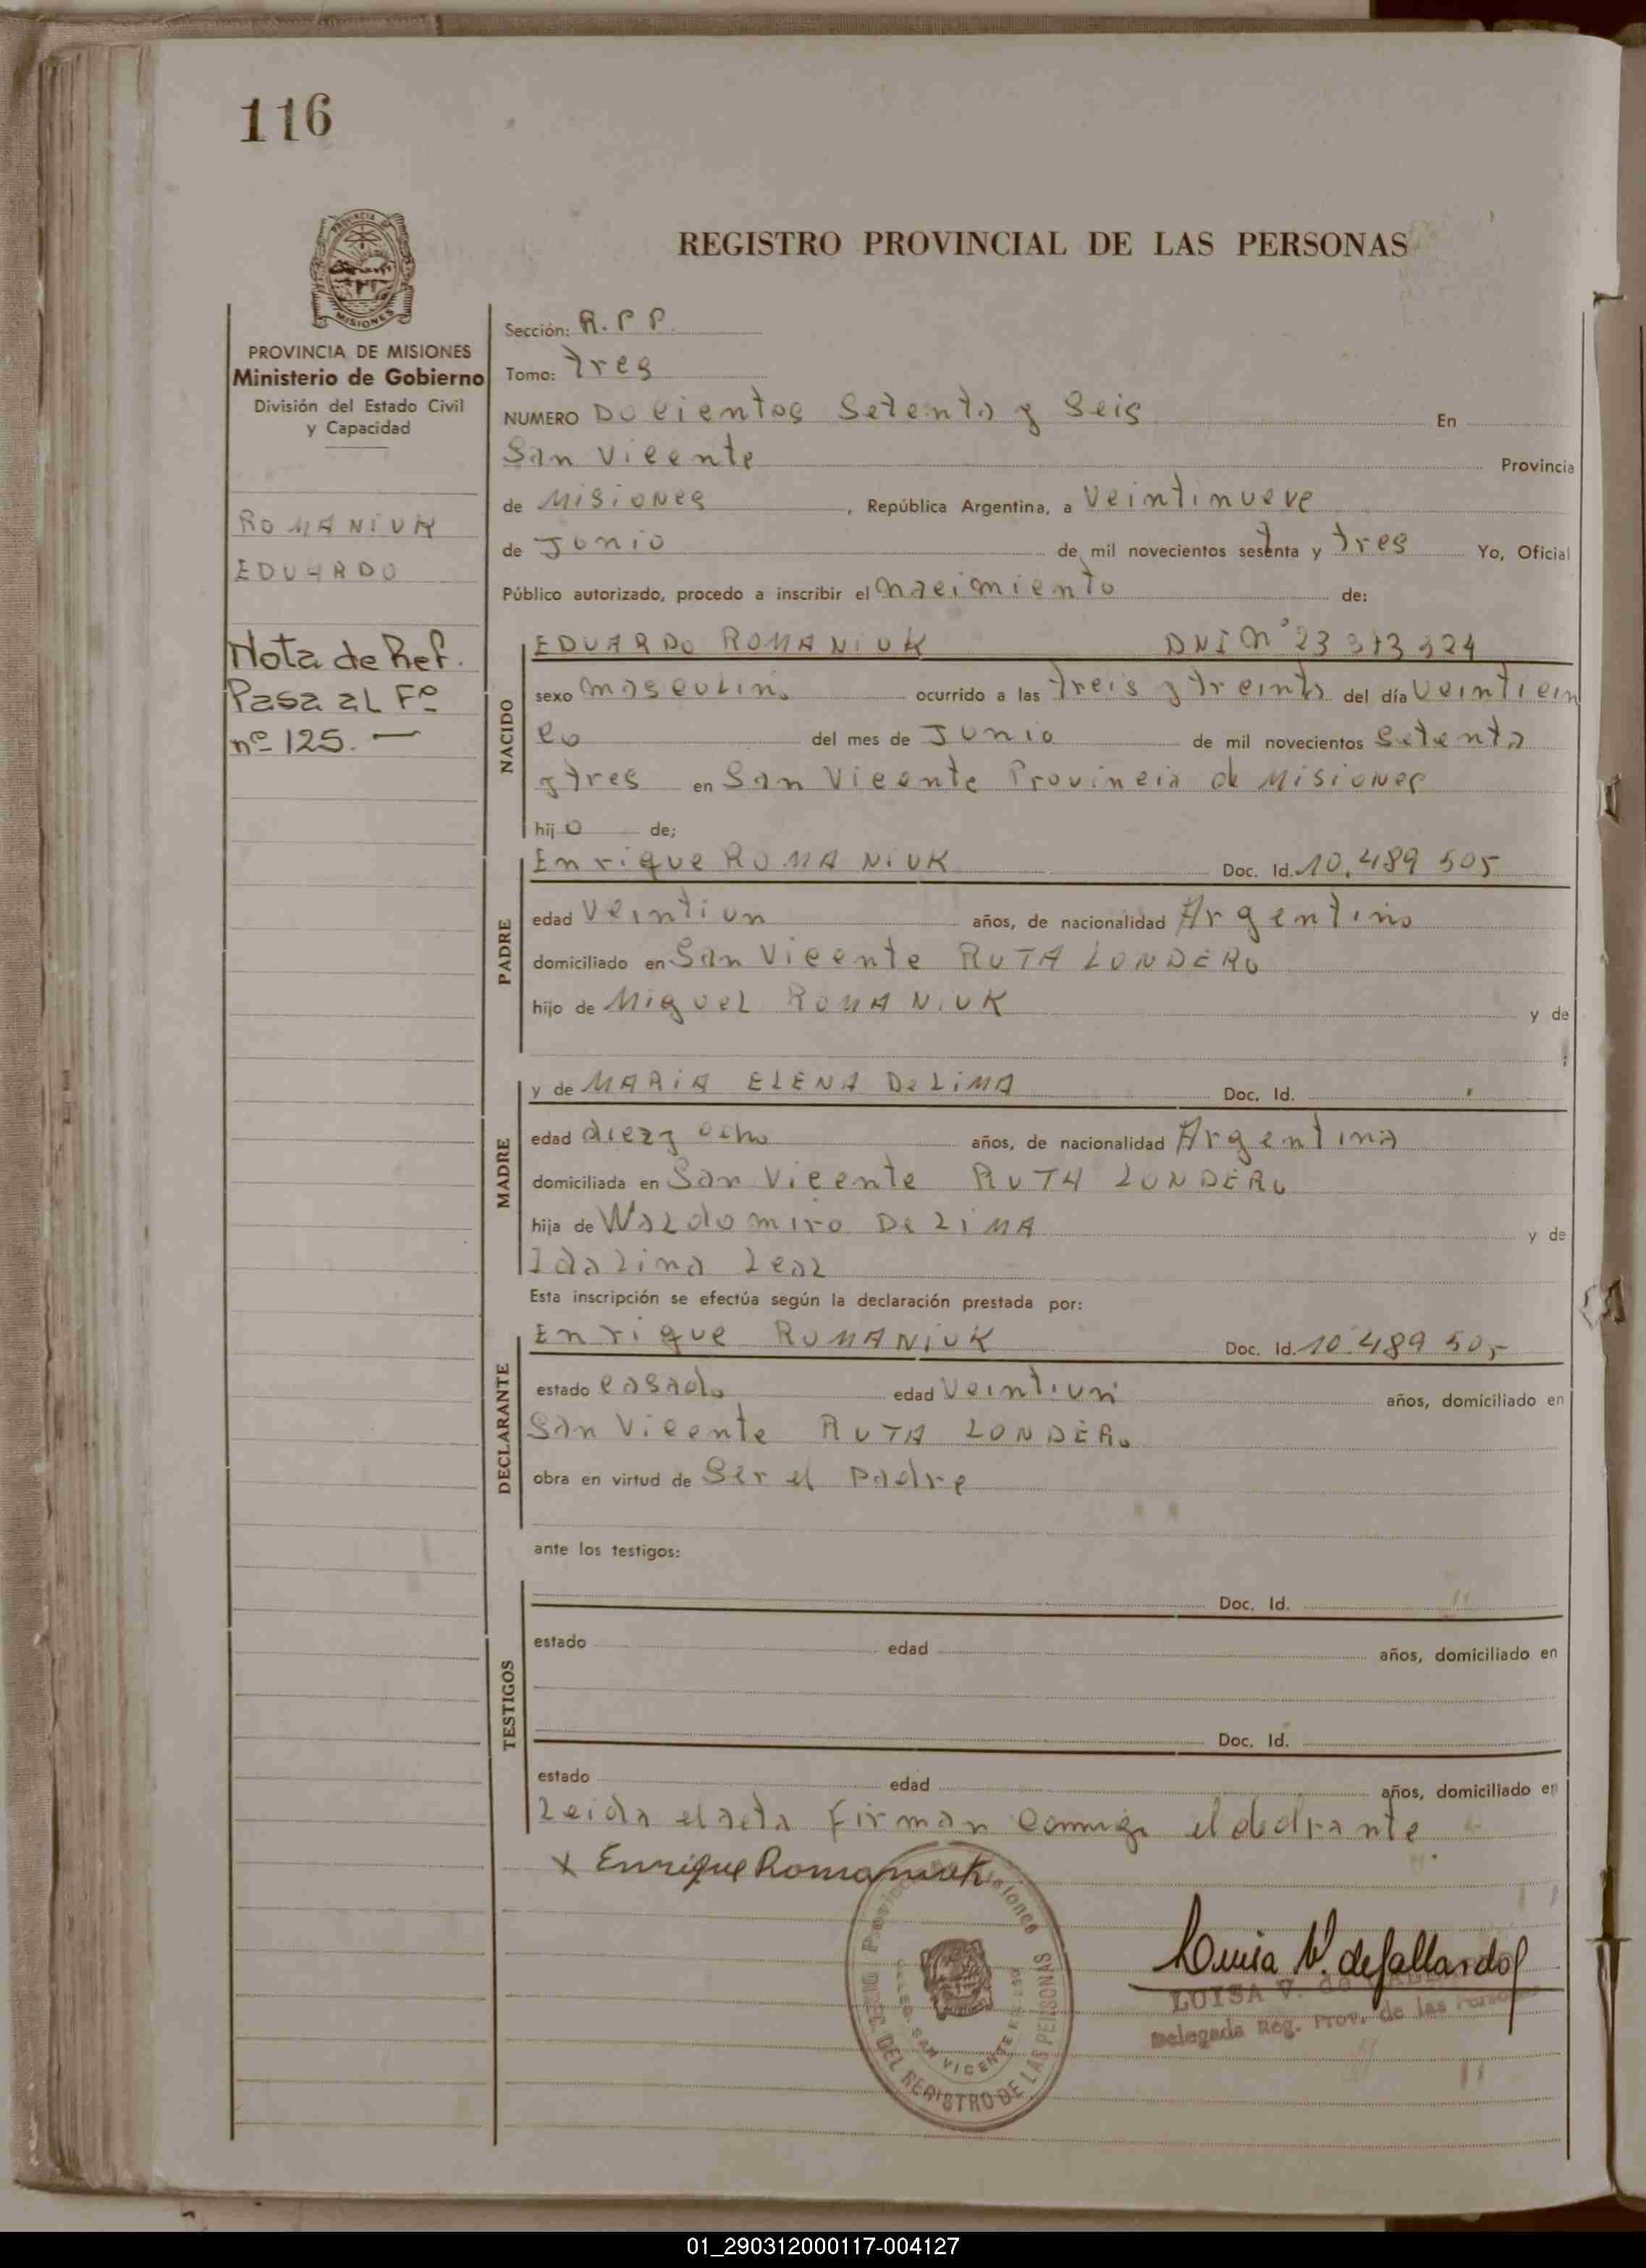 116
PROVINCIA DE
MISIONES
REGISTRO PROVINCIAL DE LAS PERSONAS
PROVINCIA DE MISIONES
Ministerio de Gobierno
División del Estado Civil
y Capacidad
ROMANIUK
EDUARDO
Nota de Ref.
Pasa al Fº
nº 125. —
Sección: R.P P.
Tomo: tres
NUMERO Docientos Setenta y Seis En
San Vicente Provincia
de Misiones, República Argentina, a Veintinueve
de Junio de mil novecientos setenta y tres Yo, Oficial
Público autorizado, procedo a inscribir el nacimiento de:
NACIDO
EDUARDO ROMANIUK DNI Nº 23 313 924
sexo masculino ocurrido a las treis y treinta del día Veinticin
co del mes de Junio de mil novecientos Setenta
y tres en San Vicente Provincia de Misiones
hijo de;
PADRE
Enrique ROMANIUK Doc. Id. 10.489 505
edad Veintiun años, de nacionalidad Argentino
domiciliado en San Vicente RUTA LONDERO
hijo de Miguel ROMANIUK y de
;
MADRE
y de MARIA ELENA De LiMA Doc. Id.
edad diez y ocho años, de nacionalidad Argentina
domiciliada en San Vicente RUTA LONDERO
hija de Waldomiro De LiMA y de
Idalina Leal
Esta inscripción se efectúa según la declaración prestada por:
DECLARANTE
Enrique ROMANIUK Doc. Id. 10.489 505
estado casado edad Veintiun años, domiciliado en
San Vicente RUTA LONDERO
obra en virtud de Ser el Padre
ante los testigos:
TESTIGOS
Doc. Id.
estado edad años, domiciliado en
Doc. Id.
estado edad años, domiciliado en
Leida el acta firman conmigo el
x Enrique Romaniuk
Luisa V. de Gallardo
LUISA V. de
Delegada Reg. Prov. de las Personas
DEL REGISTRO DE LAS PERSONAS
SAN VICENTE
01_290312000117-004127